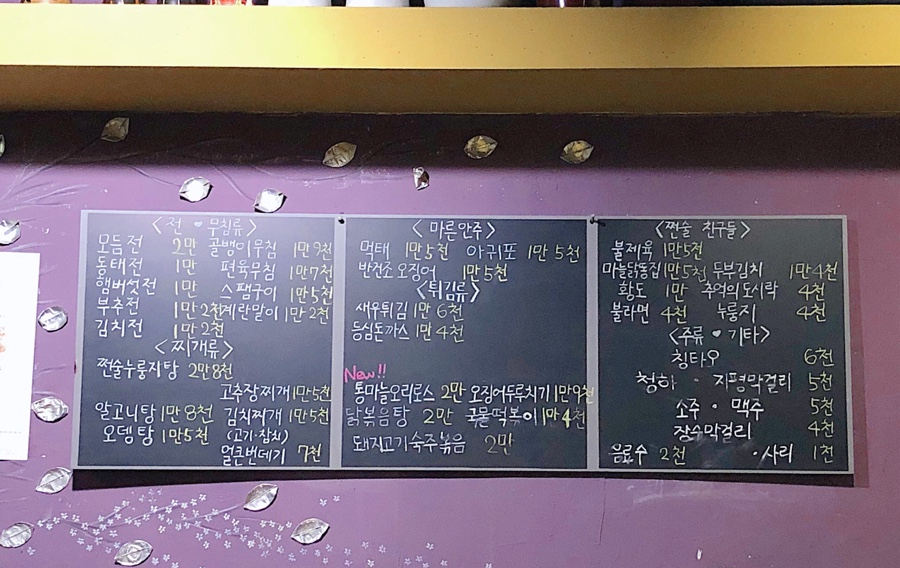 <전 ♥ 무침류>
모듬전 2만 골뱅이무침 1만9천
동태전 1만 편육무침 1만7천
햄버섯전 1만 스팸구이 1만5천
부추전 1만2천 계란말이 1만2천
김치전 1만2천
<찌개류>
쩐술누룽지탕 2만8천
고추장찌개 1만5천
알고니탕 1만8천 김치찌개 1만5천
오뎅탕 1만5천 (고기·참치)
얼큰번데기 7천
<마른안주>
먹태 1만5천 아귀포 1만5천
반건조오징어 1만5천
<튀김류>
새우튀김 1만6천
등심돈까스 1만4천
New!!
통마늘오리로스 2만 오징어두루치기 1만9천
닭볶음탕 2만 국물떡볶이 1만4천
돼지고기숙주볶음 2만
<쩐술 친구들>
불제육 1만5천
마늘닭똥집 1만5천 두부김치 1만4천
황도 1만 추억의도시락 4천
불라면 4천 누룽지 4천
<주류 ♥ 기타>
칭타오 6천
청하 · 지평막걸리 5천
소주 · 맥주 5천
장수막걸리 4천
음료수 2천 ·사리 1천